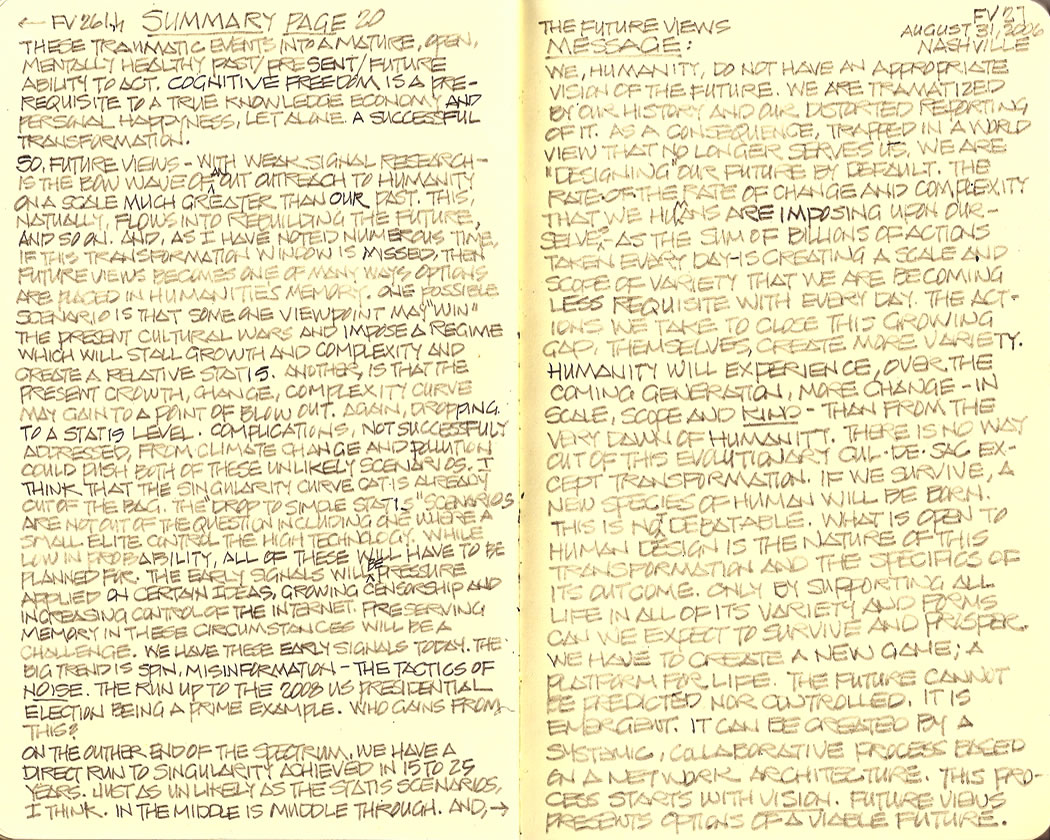 ← FV 26 SUMMARY PAGE 20
THESE TRAMMATIC EVENTS INTO A MATURE, OPEN,
MENTALLY HEALTHY PAST/PRESENT/FUTURE
ABILITY TO ACT. COGNITIVE FREEDOM IS A PRE-
REQUISITE TO A TRUE KNOWLEDGE ECONOMY AND
PERSONAL HAPPYNESS, LET ALONE A SUCCESSFUL
TRANSFORMATION.
SO, FUTURE VIEWS - WITH WEAK SIGNAL RESEARCH -
IS THE BOW WAVE OF AN OUT OUTREACH TO HUMANITY
ON A SCALE MUCH GREATER THAN OUR PAST. THIS,
NATUALLY, FLOWS INTO REBUILDING THE FUTURE,
AND SO ON. AND, AS I HAVE NOTED NUMEROUS TIME,
IF THIS TRANSFORMATION WINDOW IS MISSED, THEN
FUTURE VIEWS BECOMES ONE OF MANY WAYS OPTIONS
ARE PLACED IN HUMANITIE'S MEMORY. ONE POSSIBLE
SCENARIO IS THAT SOME ONE VIEWPOINT MAY "WIN"
THE PRESENT CULTURAL WARS AND IMPOSE A REGIME
WHICH WILL STALL GROWTH AND COMPLEXITY AND
CREATE A RELATIVE STATIS. ANOTHER, IS THAT THE
PRESENT GROWTH, CHANGE, COMPLEXITY CURVE
MAY GAIN TO A POINT OF BLOW OUT. AGAIN, DROPPING
TO A STATIS LEVEL. COMPLICATIONS, NOT SUCCESSFULY
ADDRESSED, FROM CLIMATE CHANGE AND POLLUTION
COULD PUSH BOTH OF THESE UNLIKELY SCENARIOS. I
THINK THAT THE SINGULARITY CURVE CAT IS ALREADY
OUT OF THE BAG. THE "DROP TO SIMPLE STATIS" SCENARIOS
ARE NOT OUT OF THE QUESTION INCLUDING ONE WHERE A
SMALL ELITE CONTROL THE HIGH TECHNOLOGY. WHILE
LOW IN PROBABILITY, ALL OF THESE WILL HAVE TO BE
PLANNED FOR. THE EARLY SIGNALS WILL BE PRESSURE
APPLIED ON CERTAIN IDEAS, GROWING CENSORSHIP AND
INCREASING CONTROL OF THE INTERNET. PRESERVING
MEMORY IN THESE CIRCUMSTANCES WILL BE A
CHALLENGE. WE HAVE THESE EARLY SIGNALS TODAY. THE
BIG TREND IS SPIN, MISINFORMATION - THE TACTICS OF
NOISE. THE RUN UP TO THE 2008 US PRESIDENTIAL
ELECTION BEING A PRIME EXAMPLE. WHO GAINS FROM
THIS?
ON THE OUTHER END OF THE SPECTRUM, WE HAVE A
DIRECT RUN TO SINGULARITY ACHIEVED IN 15 TO 25
YEARS. JUST AS UNLIKELY AS THE STATIS SCENARIOS,
I THINK. IN THE MIDDLE IS MUDDLE THROUGH. AND, →
FV 27
AUGUST 31, 2006
NASHVILLE
THE FUTURE VIEWS
MESSAGE:
WE, HUMANITY, DO NOT HAVE AN APPROPRIATE
VISION OF THE FUTURE. WE ARE TRAMATIZED
BY OUR HISTORY AND OUR DISTORTED REPORTING
OF IT. AS A CONSEQUENCE, TRAPPED IN A WORLD
VIEW THAT NO LONGER SERVES US, WE ARE
"DESIGNING" OUR FUTURE BY DEFAULT. THE
RATE-OF-THE RATE OF CHANGE AND COMPLEXITY
THAT WE HUMANS ARE IMPOSING UPON OUR-
SELVES - AS THE SUM OF BILLIONS OF ACTIONS
TAKEN EVERY DAY - IS CREATING A SCALE AND
SCOPE OF VARIETY THAT WE ARE BECOMING
LESS REQUISITE WITH EVERY DAY. THE ACT-
IONS WE TAKE TO CLOSE THIS GROWING
GAP, THEMSELVES, CREATE MORE VARIETY.
HUMANITY WILL EXPERIENCE, OVER THE
COMING GENERATION, MORE CHANGE - IN
SCALE, SCOPE AND KIND - THAN FROM THE
VERY DAWN OF HUMANITY. THERE IS NO WAY
OUT OF THIS EVOLUTIONARY CUL-DE-SAC EX-
CEPT TRANSFORMATION. IF WE SURVIVE, A
NEW SPECIES OF HUMAN WILL BE BORN.
THIS IS NOT DEBATABLE. WHAT IS OPEN TO
HUMAN DESIGN IS THE NATURE OF THIS
TRANSFORMATION AND THE SPECIFICS OF
ITS OUTCOME. ONLY BY SUPPORTING ALL
LIFE IN ALL OF ITS VARIETY AND FORMS
CAN WE EXPECT TO SURVIVE AND PROSPER.
WE HAVE TO CREATE A NEW GAME; A
PLATFORM FOR LIFE. THE FUTURE CANNOT
BE PREDICTED NOR CONTROLLED. IT IS
EMERGENT. IT CAN BE CREATED BY A
SYSTAMIC, COLLABORATIVE PROCESS BASED
ON A NETWORK ARCHITECTURE. THIS PRO-
CESS STARTS WITH VISION. FUTURE VIEWS
PRESENTS OPTIONS OF A VIABLE FUTURE.